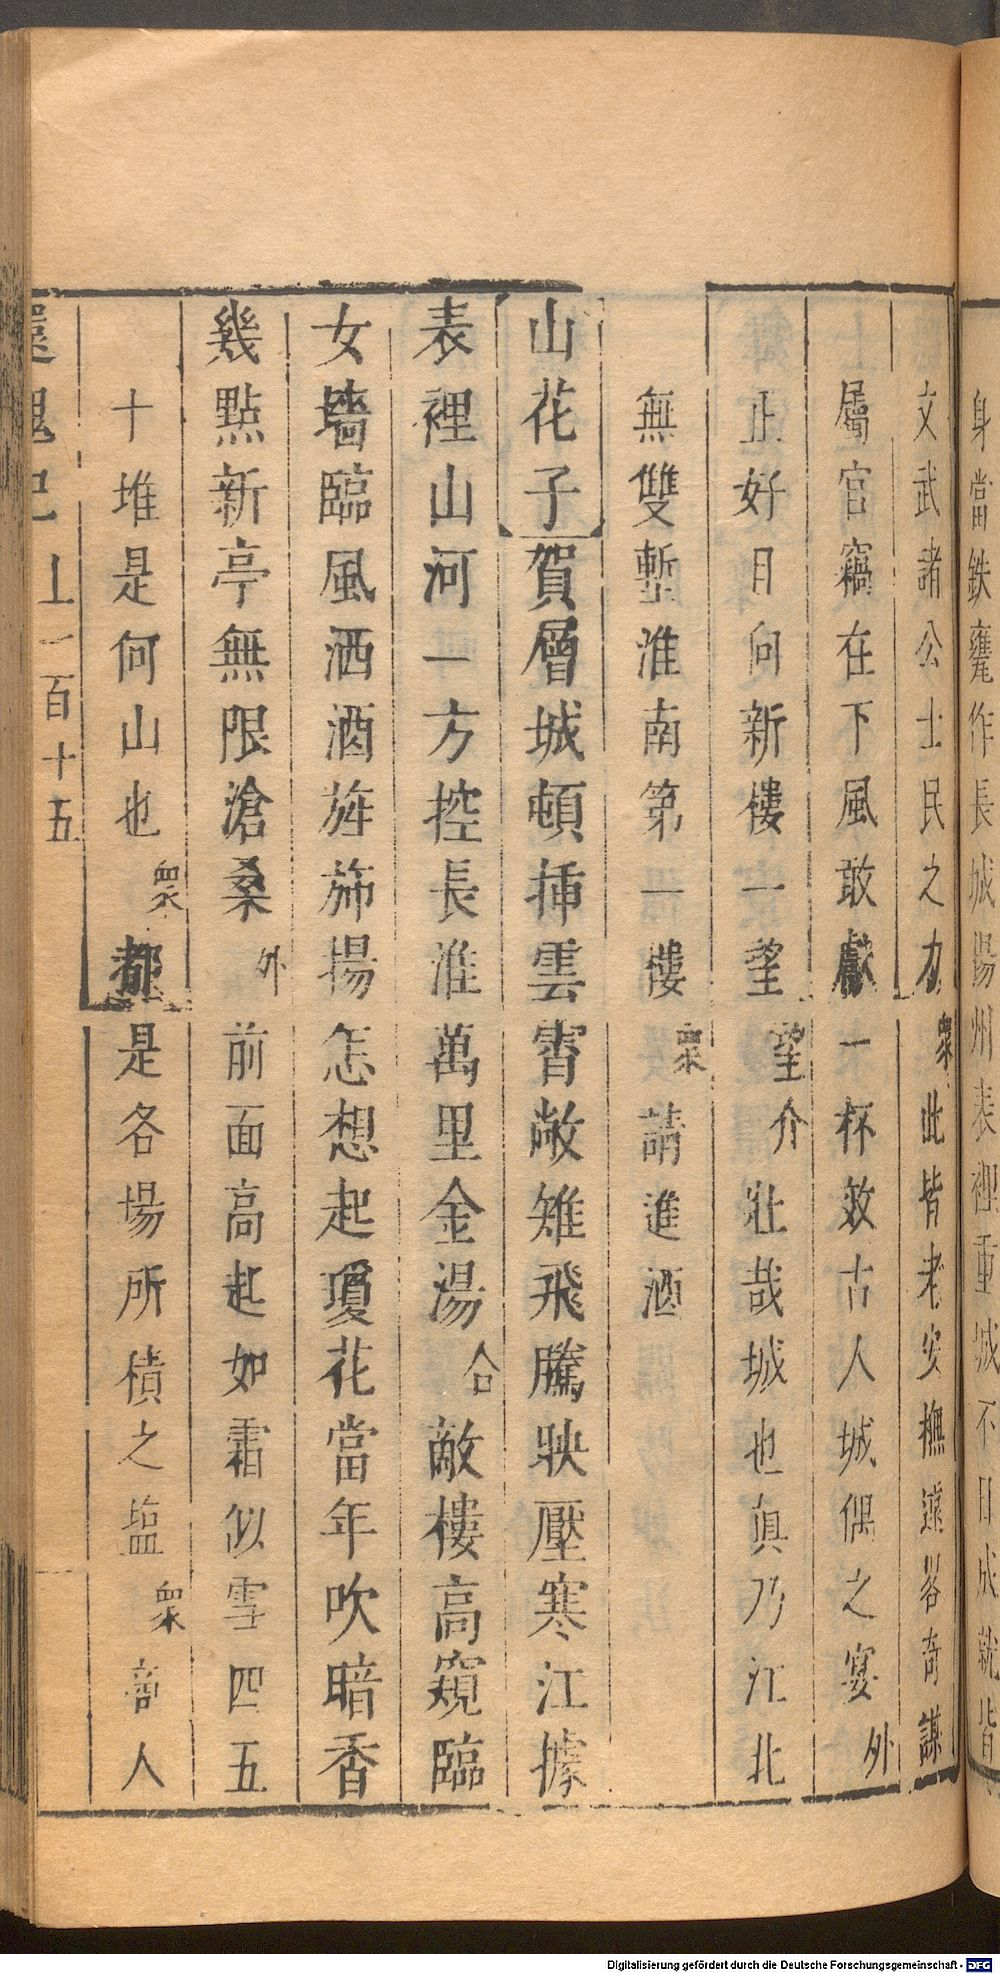 身當鉄甕作長城揚州表裡重城不日成就皆
文武諸公士民之力衆此皆老安撫遠畧奇謀
屬官竊在下風敢獻一杯效古人城偶之宴外
正好且向新樓一望望介壯哉城也眞乃江北
無雙塹淮南第一樓衆請進酒
山花子賀層城頓揷雲霄敞雉飛騰映壓寒江據
表裡山河一方控長淮萬里金湯合敵樓高窺臨
女墻臨風洒酒旌斾揚怎想起瓊花當年吹暗香
幾點新亭無限滄桑外前面高起如霜似雪四五
十堆是何山也衆都是各場所積之塩衆啇人
還魂記上一百十五
Digitalisierung gefördert durch die Deutsche Forschungsgemeinschaft - DFG